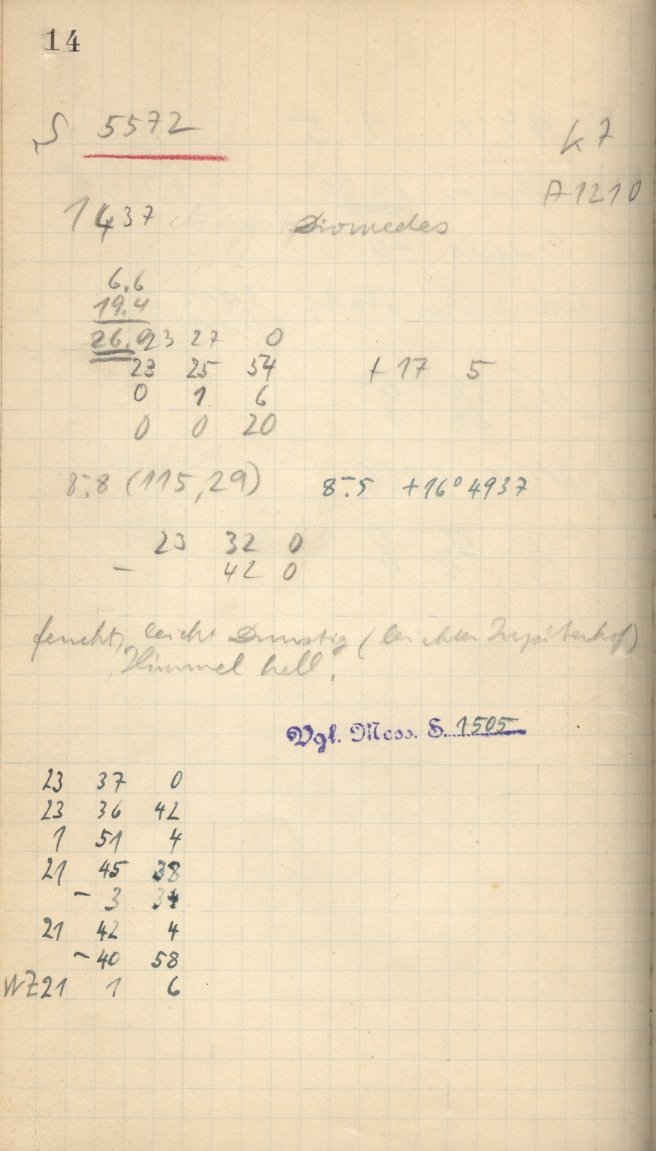 14
S 5572
K 7
A 1210
1437 Diomedes
6.6
19.4
26.0 23 27 0
23 25 54 + 17 5
0 1 6
0 0 20
8.8 (115,29) 8.5 +16° 4937
23 32 0
- 42 0
feucht, leicht dunstig (leichter Jupiterhof)
Himmel hell.
Vgl. Mess. S. 1505
23 37 0
23 36 42
1 51 4
21 45 38
- 3 34
21 42 4
- 40 58
WZ 21 1 6